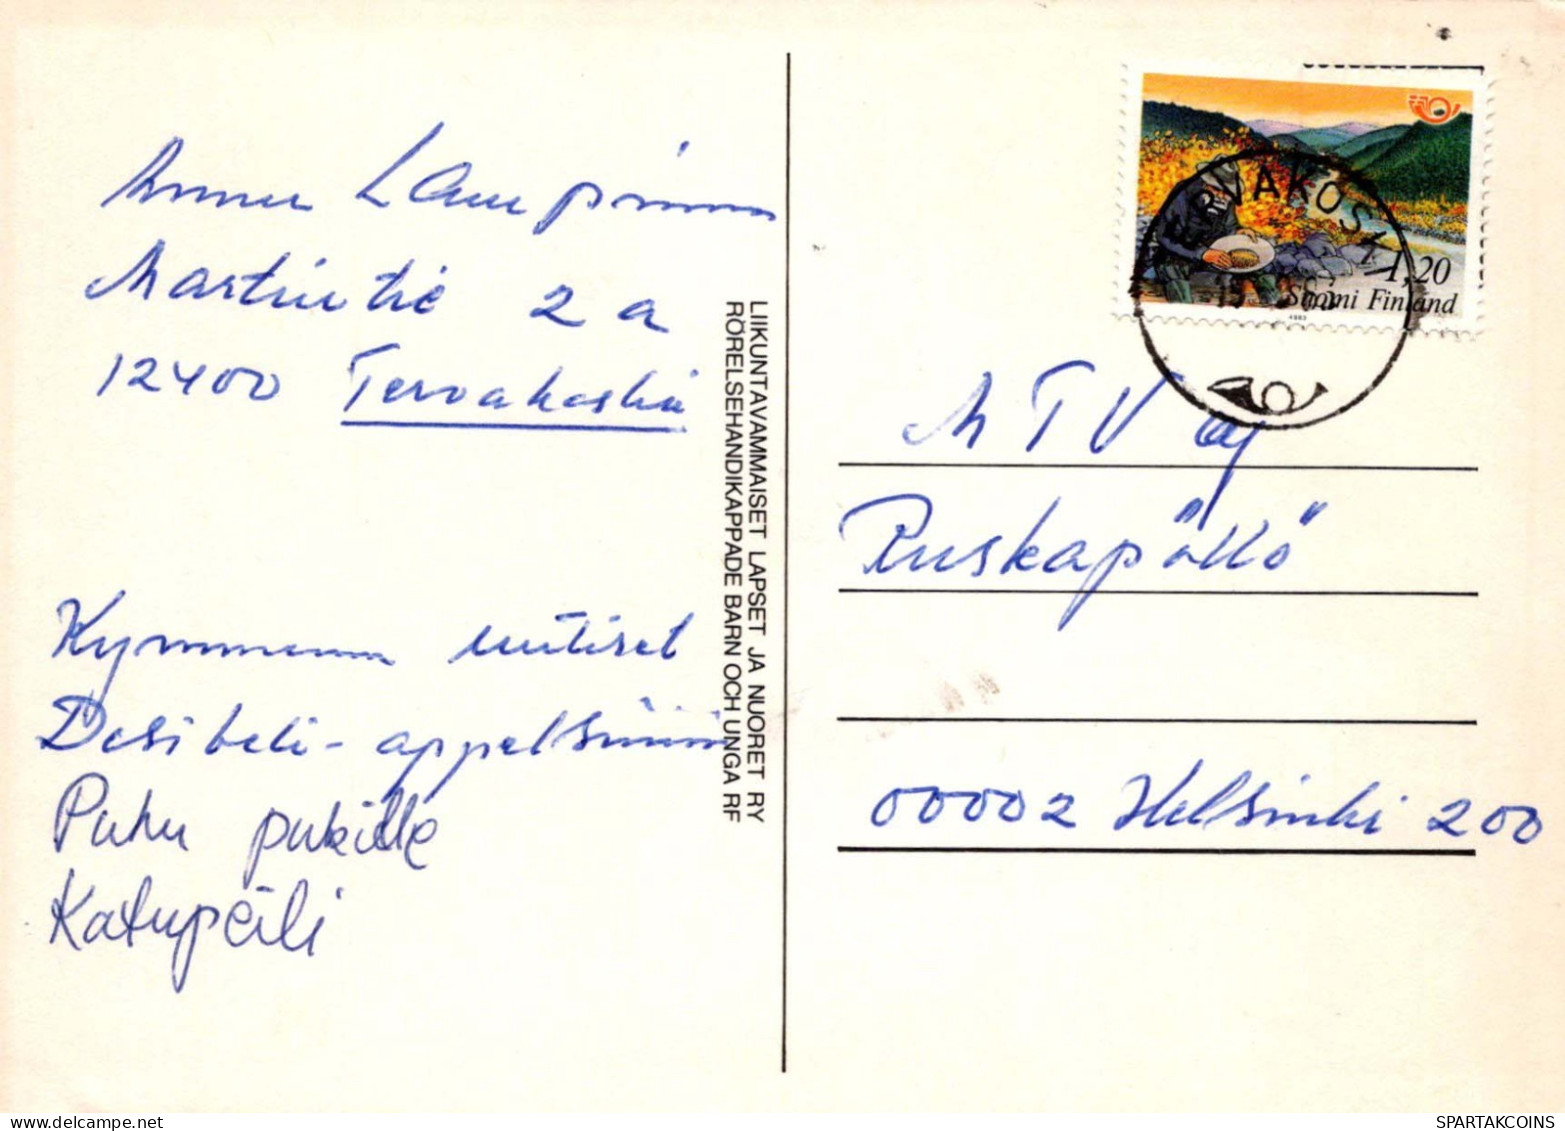 Lampinen
Martintie 2 a
12400 Tervakoski
Kymmenen uutiset
Desibeli-appelsiini
Puhu pukille
Katupeili
LIIKUNTAVAMMAISET LAPSET JA NUORET RY
RÖRELSEHANDIKAPPADE BARN OCH UNGA RF
TERVAKOSKI
1,20
Suomi Finland
1983
MTV oy
Ruskapöllö
00002 Helsinki 200
SPARTAKCOINS
delcampe.net